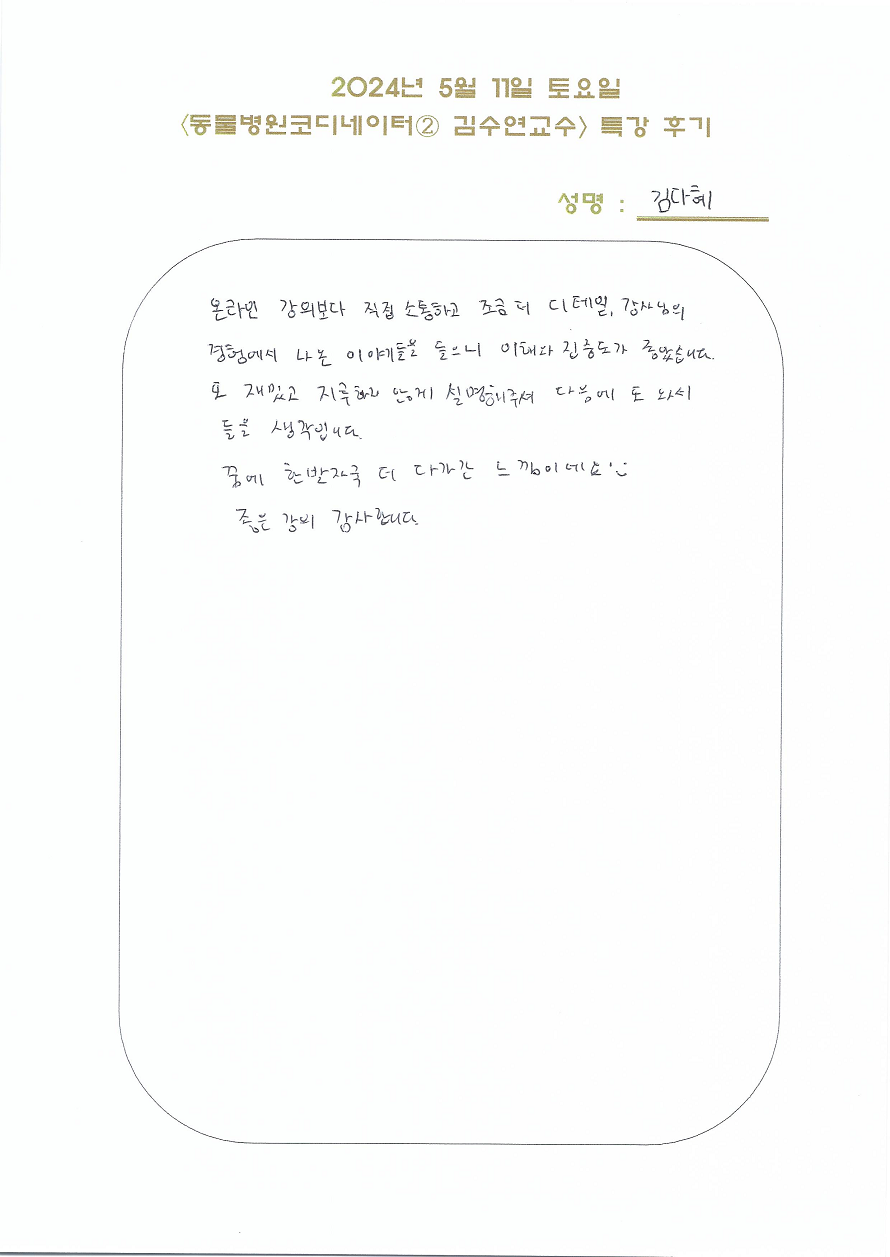 2024년 5월 11일 토요일
〈동물병원코디네이터② 김수연교수〉 특강 후기
성명 : 김다혜
온라인 강의보다 직접 소통하고 조금 더 디테일, 강사님의
경험에서 나온 이야기들을 들으니 이해와 집중도가 좋았습니다.
또 재밌고 지루하지 않게 설명해주셔 다음에 또 와서
들을 생각입니다.
꿈에 한발자국 더 다가간 느낌이네요 :)
좋은 강의 감사합니다.